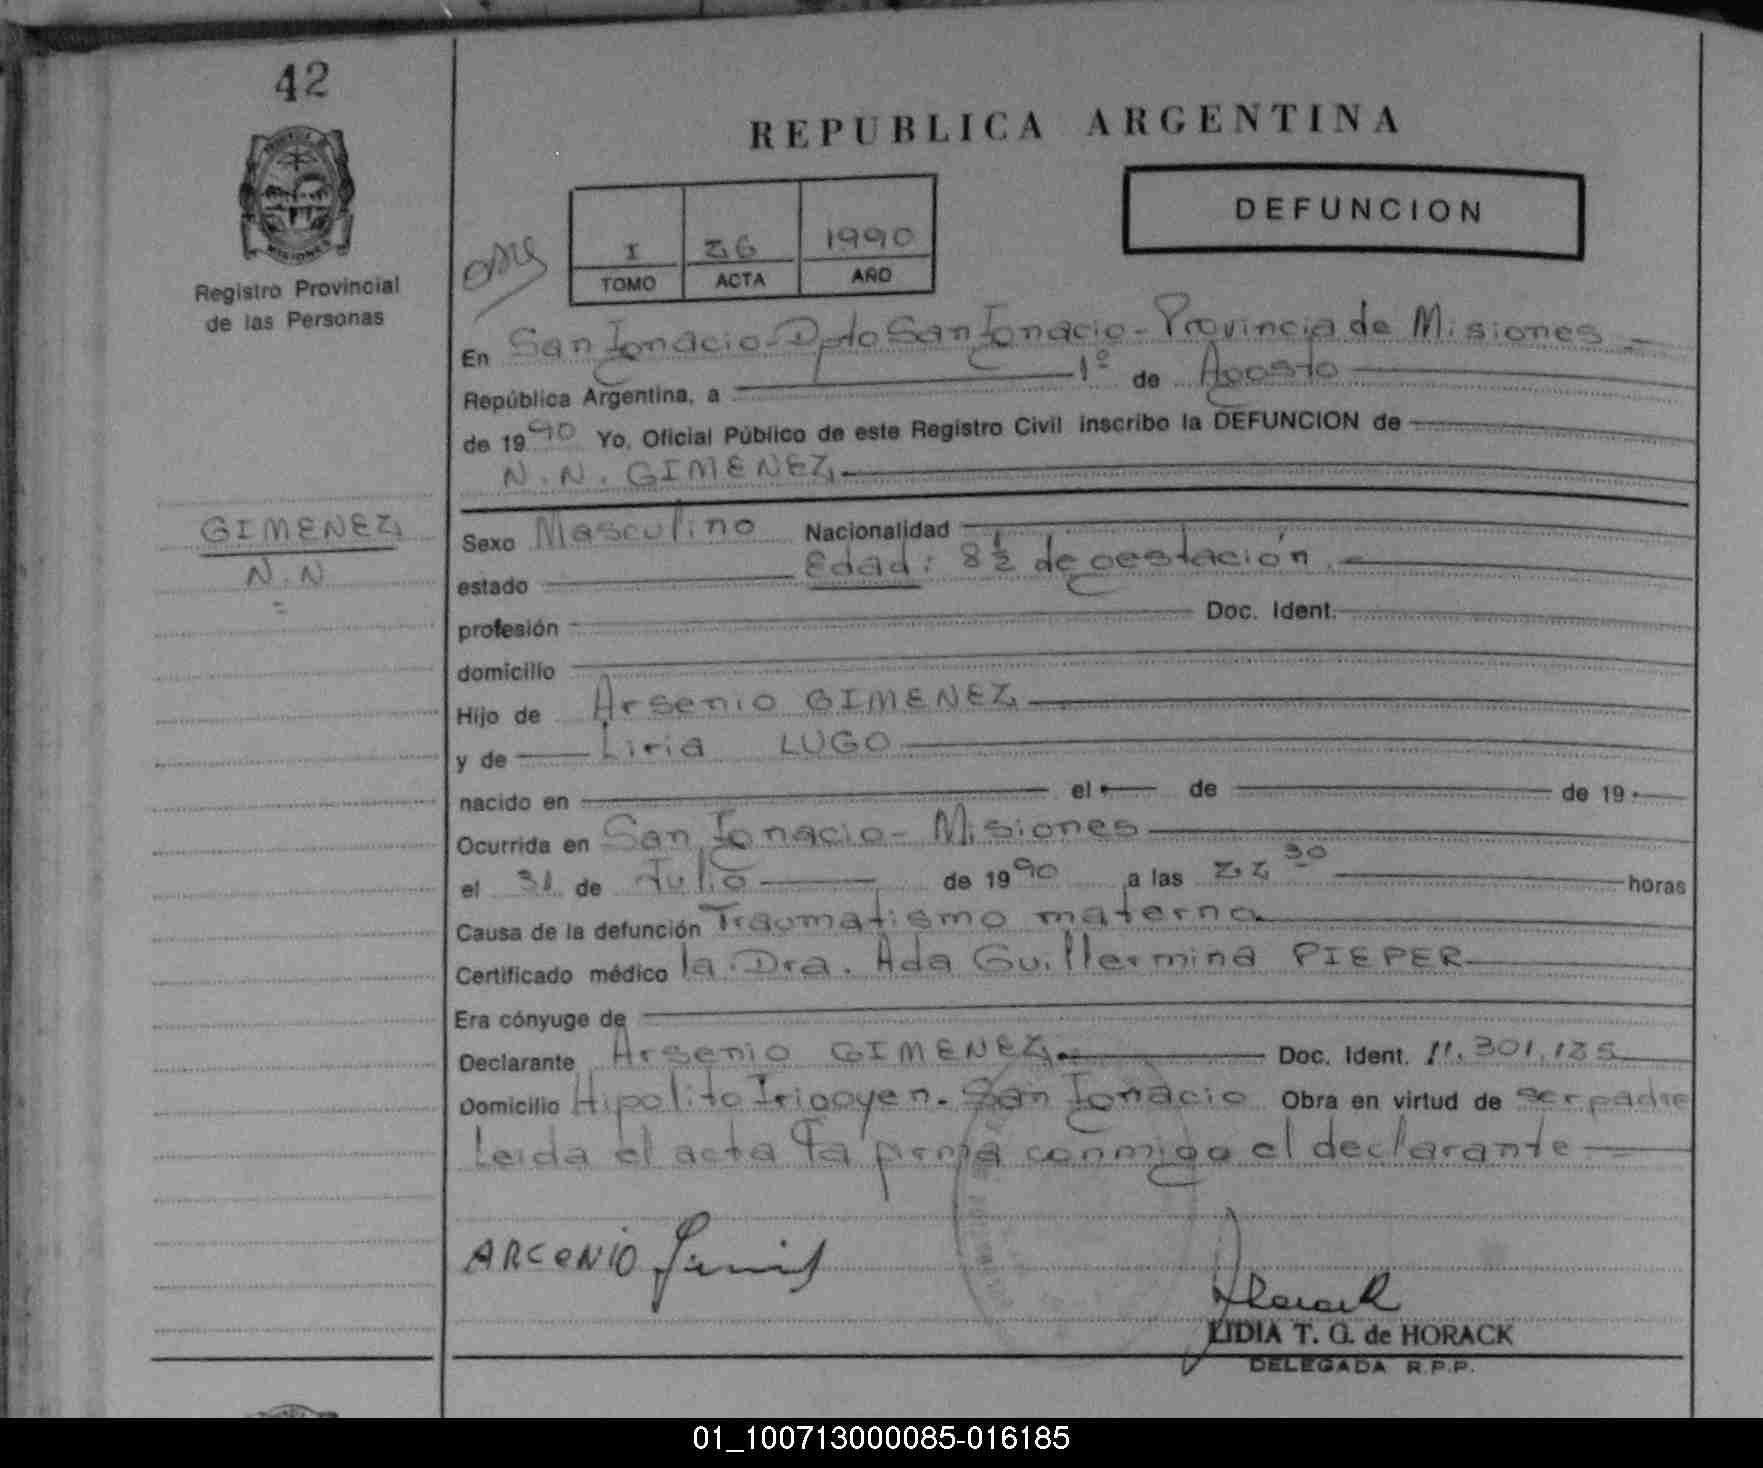 42
REPUBLICA ARGENTINA
DEFUNCION
I 26 1990
TOMO ACTA AÑO
Registro Provincial
de las Personas
En San Ignacio - Dpto San Ignacio - Provincia de Misiones
República Argentina, a 1º de Agosto
de 1990 Yo, Oficial Público de este Registro Civil inscribo la DEFUNCION de
N.N. GIMENEZ
GIMENEZ
N.N
Sexo Masculino Nacionalidad
estado Edad: 8½ de gestación.
profesión Doc. Ident.
domicilio
Hijo de Arsenio GIMENEZ
y de Liria LUGO
nacido en el de de 19
Ocurrida en San Ignacio - Misiones
el 31 de Julio de 1990 a las 22 30 horas
Causa de la defunción Traumatismo materno
Certificado médico la Dra. Ada Guillermina PIEPER
Era cónyuge de
Declarante Arsenio GIMENEZ Doc. Ident. 11.301.185
Domicilio Hipolito Irigoyen - San Ignacio Obra en virtud de ser padre
Leida el acta la firma conmigo el declarante
ARCENIO
LIDIA T. G. de HORACK
DELEGADA R.P.P.
01_100713000085-016185